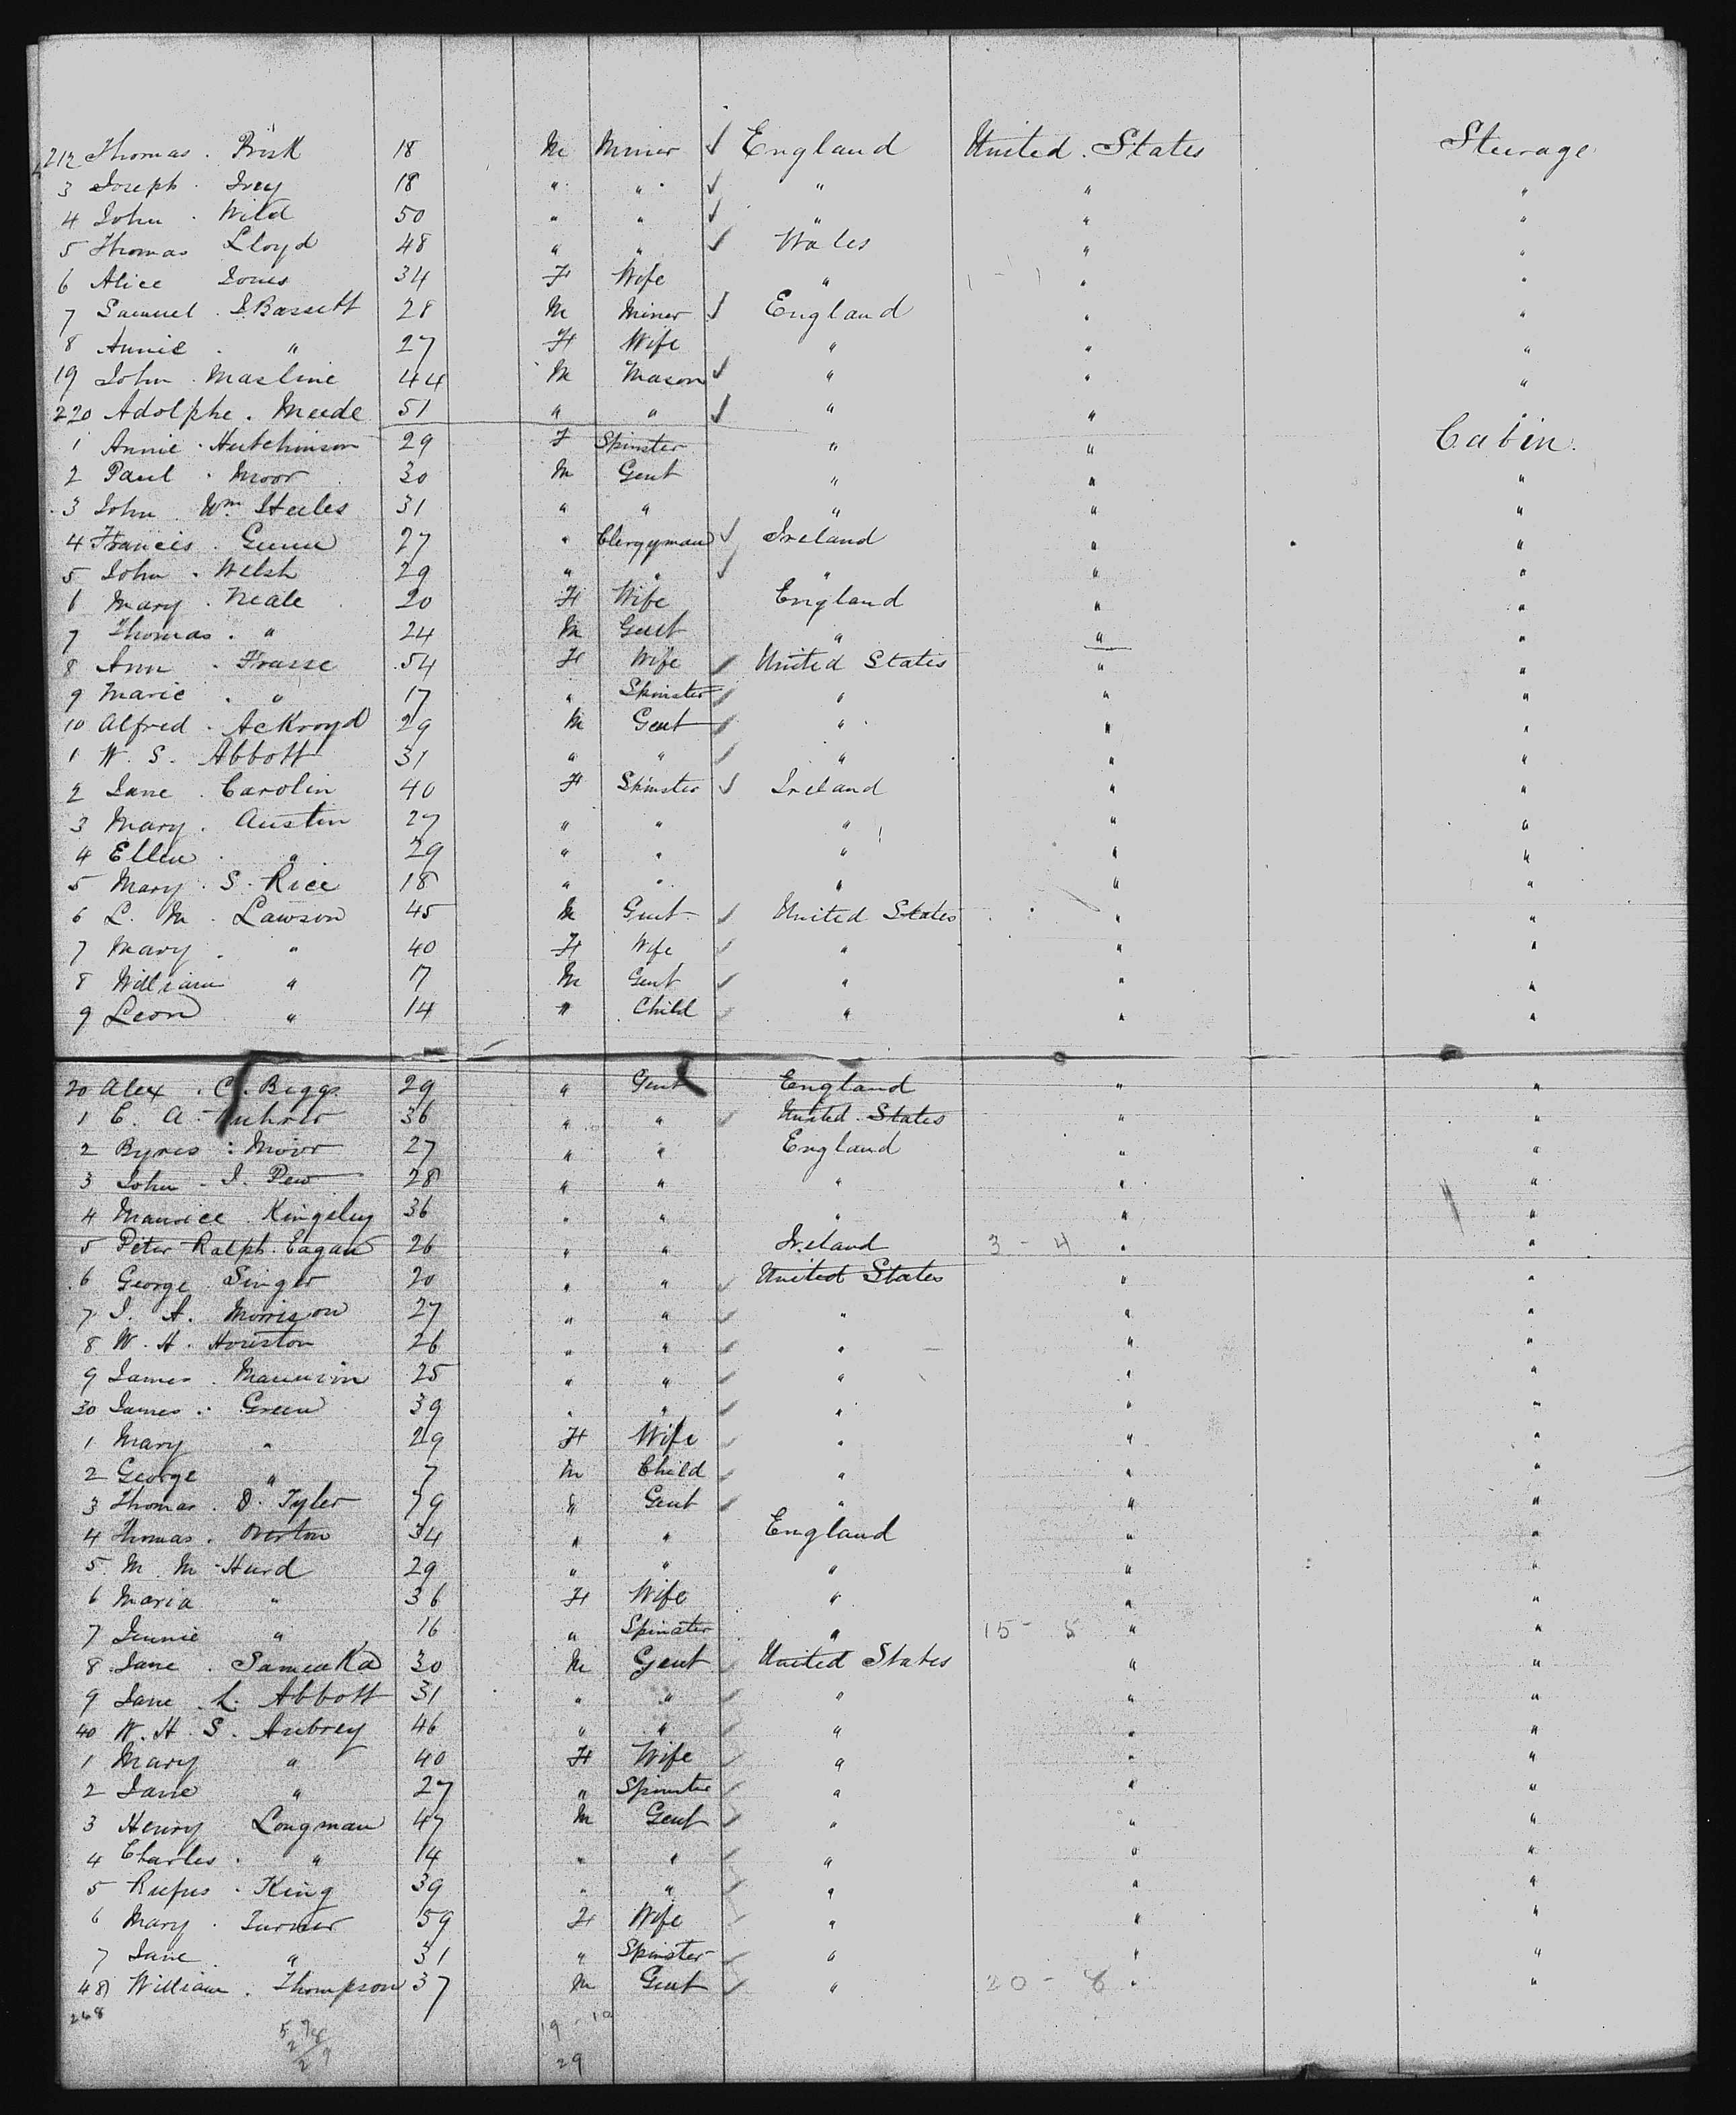 212 Thomas . Prisk 18 M Miner ✓ England United . States Steerage
3 Joseph . Ivey 18 " " ✓ " " "
4 John . Wild 50 " " ✓ " " "
5 Thomas Lloyd 48 " " ✓ Wales " "
6 Alice Jones 34 F Wife " " "
7 Samuel . S. Bassett 28 M Miner ✓ England " "
8 Annie . " 27 F Wife " " "
19 John . Masline 44 M Mason ✓ " " "
220 Adolphe . Meede 51 " " ✓ " " "
1 Annie . Hutchinson 29 F Spinster " " Cabin.
2 Paul . Moor 30 M Gent " " "
3 John Wm. Steeles 31 " " " " "
4 Francis . Gunn 27 " Clergyman ✓ Ireland " "
5 John . Welsh 29 " " ✓ " " "
6 Mary . Neale 20 F Wife England " "
7 Thomas . " 24 M Gent " " "
8 Ann . Frasse 54 F Wife ✓ United States " "
9 Marie . " 17 " Spinster ✓ " " "
10 Alfred . Ackroyd 29 M Gent ✓ " " "
1 W. S. Abbott 31 " " ✓ " " "
2 Jane . Carolin 40 F Spinster ✓ Ireland " "
3 Mary . Austin 27 " " " " "
4 Ellen . " 29 " " " " "
5 Mary . S. Rice 18 " " " " "
6 L. M. Lawson 45 M Gent ✓ United States " "
7 Mary . " 40 F Wife ✓ " " "
8 William " 17 M Gent ✓ " " "
9 Leon " 14 " Child ✓ " " "
20 Alex . C. Biggs 29 " Gent England " "
1 E. A. 36 " " ✓ United States " "
2 Byres : Moir 27 " " England " "
3 John - I. Pew 28 " " " " "
4 Maurice . Kingsley 36 " " " " "
5 Peter Ralph . Eagan 26 " " Ireland 3 - 4 " "
6 George . Singer 20 " " ✓ United States " "
7 I. A. Morrison 27 " " ✓ " " "
8 W. H. Houston 26 " " ✓ " " "
9 James . 25 " " ✓ " " "
30 James . Green 39 " " ✓ " " "
1 Mary " 29 F Wife ✓ " " "
2 George " 7 M Child ✓ " " "
3 Thomas . D. Tyler 79 " Gent ✓ " " "
4 Thomas . Overton 34 " " England " "
5 M. M. Hurd 29 " " " " "
6 Maria " 36 F Wife " " "
7 Jennie " 16 " Spinster " 15 - 5 " "
8 Jane . 30 M Gent ✓ United States " "
9 Jane . L. Abbott 31 " " ✓ " " "
40 W. H. S. Aubrey 46 " " ✓ " " "
1 Mary " 40 F Wife ✓ " " "
2 Jane " 27 " Spinster ✓ " " "
3 Henry Longman 47 M Gent ✓ " " "
4 Charles . " 14 " " ✓ " " "
5 Rufus . King 39 " " ✓ " " "
6 Mary . Turner 59 F Wife ✓ " " "
7 Jane . " 31 " Spinster ✓ " " "
48 William . Thompson 37 M Gent ✓ " 20 - 8 " "
268 19 - 10
29